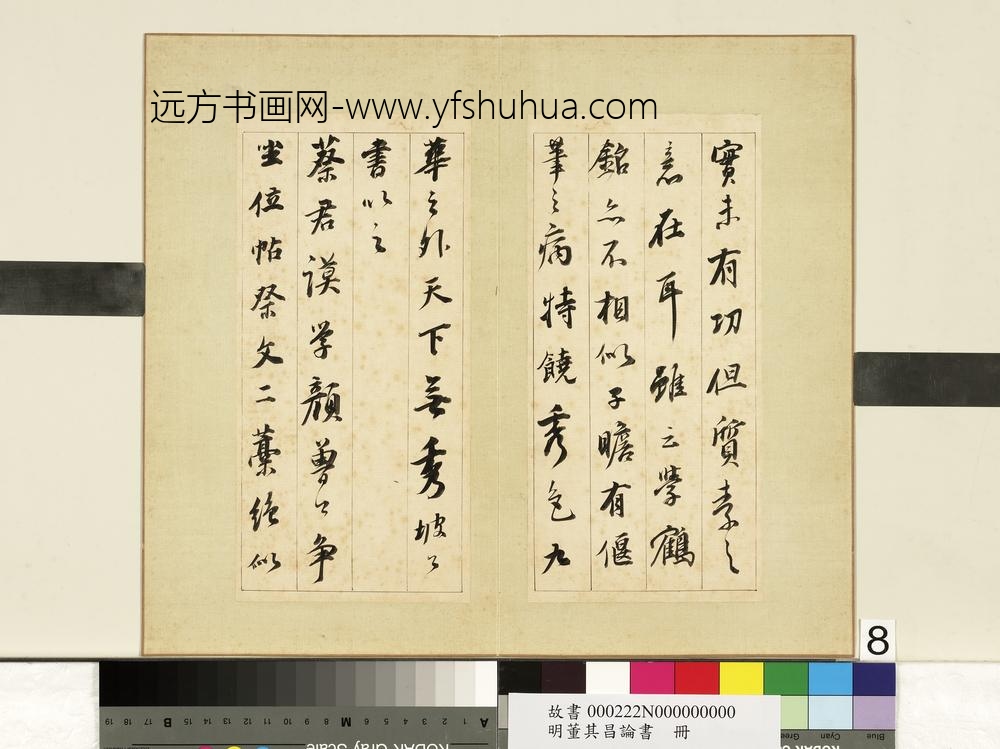 远方书画网-www.yfshuhua.com
實未有功但質素之
意在耳雖云學鶴
銘亦不相似子瞻有偃
筆之病特饒秀色九
華之外天下無秀坡公
書似之
蔡君謨學顏魯公争
坐位帖祭文二藁絶似
8
故書 000222N000000000
明董其昌論書 冊
KODAK Gray Scale
A 1 2 3 4 5 6 M 8 9 10 11 12 13 14 15 B 17 18 19
Blue Cyan Green